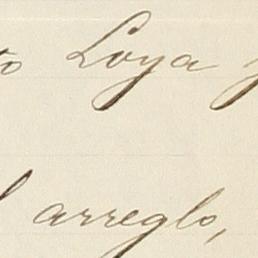 to Loya y
l arreglo,